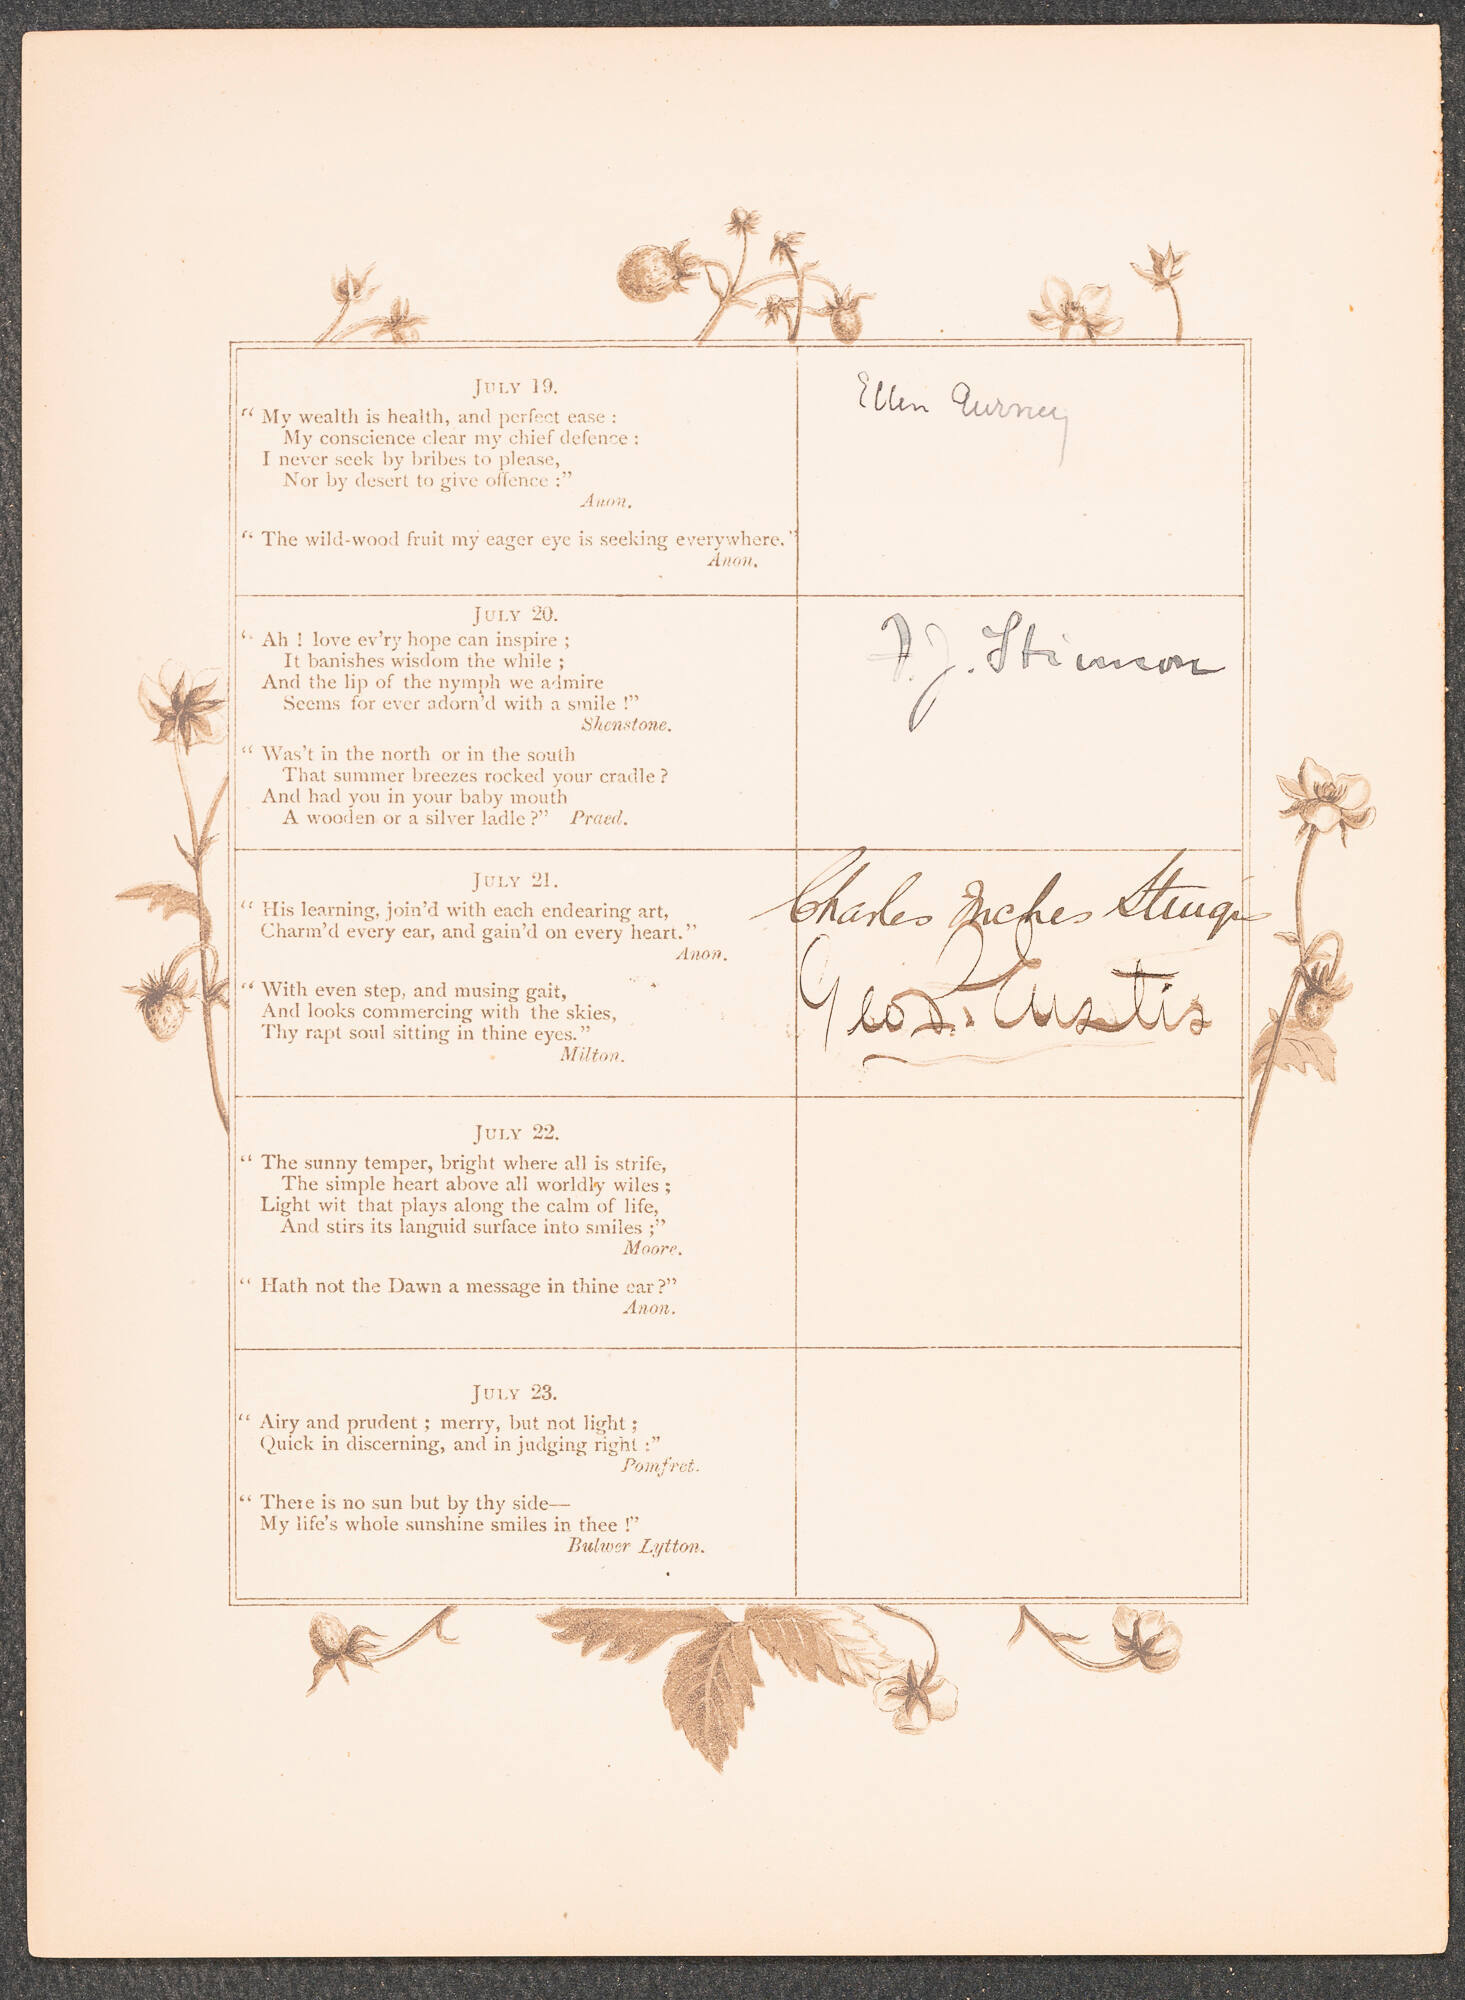 JULY 19.
“ My wealth is health, and perfect ease :
My conscience clear my chief defence :
I never seek by bribes to please,
Nor by desert to give offence :”
Anon.
“ The wild-wood fruit my eager eye is seeking everywhere.”
Anon.
Ellen Gurney
JULY 20.
“ Ah ! love ev'ry hope can inspire ;
It banishes wisdom the while ;
And the lip of the nymph we admire
Seems for ever adorn'd with a smile !”
Shenstone.
“ Was't in the north or in the south
That summer breezes rocked your cradle ?
And had you in your baby mouth
A wooden or a silver ladle ?” Praed.
F. J. Stimson
JULY 21.
“ His learning, join'd with each endearing art,
Charm'd every ear, and gain'd on every heart.”
Anon.
“ With even step, and musing gait,
And looks commercing with the skies,
Thy rapt soul sitting in thine eyes.”
Milton.
Charles Inches Sturgis
Geo. Curtis
JULY 22.
“ The sunny temper, bright where all is strife,
The simple heart above all worldly wiles ;
Light wit that plays along the calm of life,
And stirs its languid surface into smiles ;”
Moore.
“ Hath not the Dawn a message in thine ear ?”
Anon.
JULY 23.
“ Airy and prudent ; merry, but not light ;
Quick in discerning, and in judging right :”
Pomfret.
“ There is no sun but by thy side—
My life's whole sunshine smiles in thee !”
Bulwer Lytton.